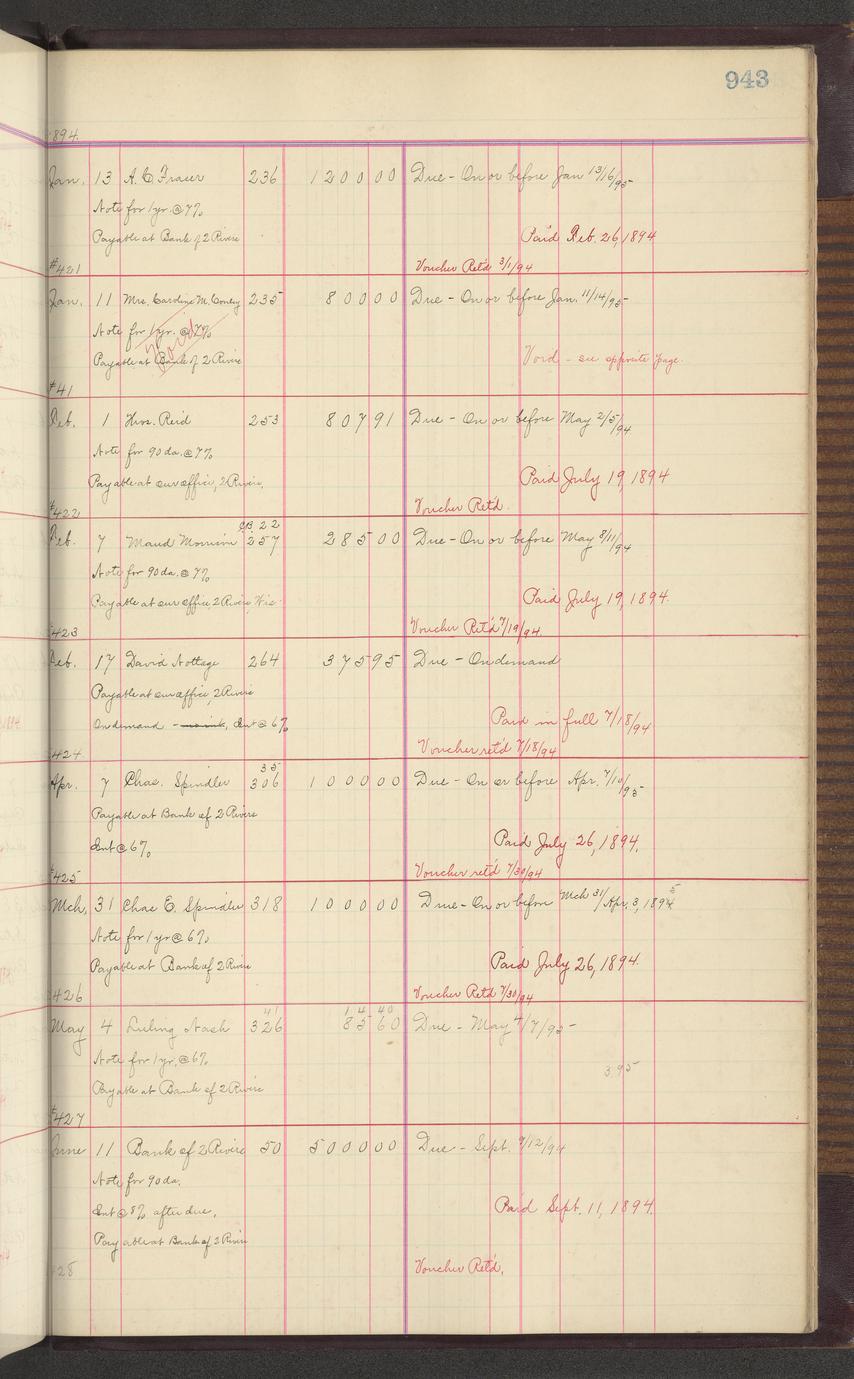 943
1894.
Jan. 13 A. C. Fraser 236 1200 00 Due - On or before Jan 13/16/95-
Note for 1 yr. @ 7%
Payable at Bank of 2 Rivers Paid Feb. 26, 1894
#421 Voucher Ret'd 3/1/94
Jan. 11 Mrs. Caroline M. Conley 235 800 00 Due - On or before Jan. 11/14/95-
Note for 1 yr. @ 7%
Void
Payable at Bank of 2 Rivers Void - see opposite page.
#41
Feb. 1 Reid 253 807 91 Due - On or before May 2/5/94
Note for 90 da. @ 7%
Payable at our office, 2 Rivers. Paid July 19, 1894
#422 Voucher Ret'd.
22
Feb. 7 Maud 257 285 00 Due - On or before May 8/11/94
Note for 90 da. @ 7%
Payable at our office 2 Rivers, Wis. Paid July 19, 1894.
#423 Voucher Ret'd 7/19/94.
Feb. 17 David Nottage 264 375 95 Due - On demand
Payable at our office, 2 Rivers
On demand - no int, Int @ 6% Paid in full 7/18/94
424 Voucher ret'd 7/18/94
35
Apr. 7 Chas. Spindler 306 1000 00 Due - On or before Apr. 7/10/95-
Payable at Bank of 2 Rivers
Int @ 6% Paid July 26, 1894.
#425 Voucher ret'd 7/30/94
5
Mch, 31 Chas E. Spindler 318 1000 00 Due - On or before Mch 31/Apr. 3, 1894
Note for 1 yr @ 6%
Payable at Bank of 2 Rivers Paid July 26, 1894.
426 Voucher Ret'd 7/30/94
41 14 40
May 4 Luling Nash 326 85 60 Due - May 4/7/95-
Note for 1 yr, @ 6% 3.95
Payable at Bank of 2 Rivers
#427
June 11 Bank of 2 Rivers 50 5000 00 Due - Sept. 9/12/94
Note for 90 da.
Int @ 8% after due, Paid Sept. 11, 1894.
Payable at Bank of 2 Rivers
428 Voucher Ret'd.